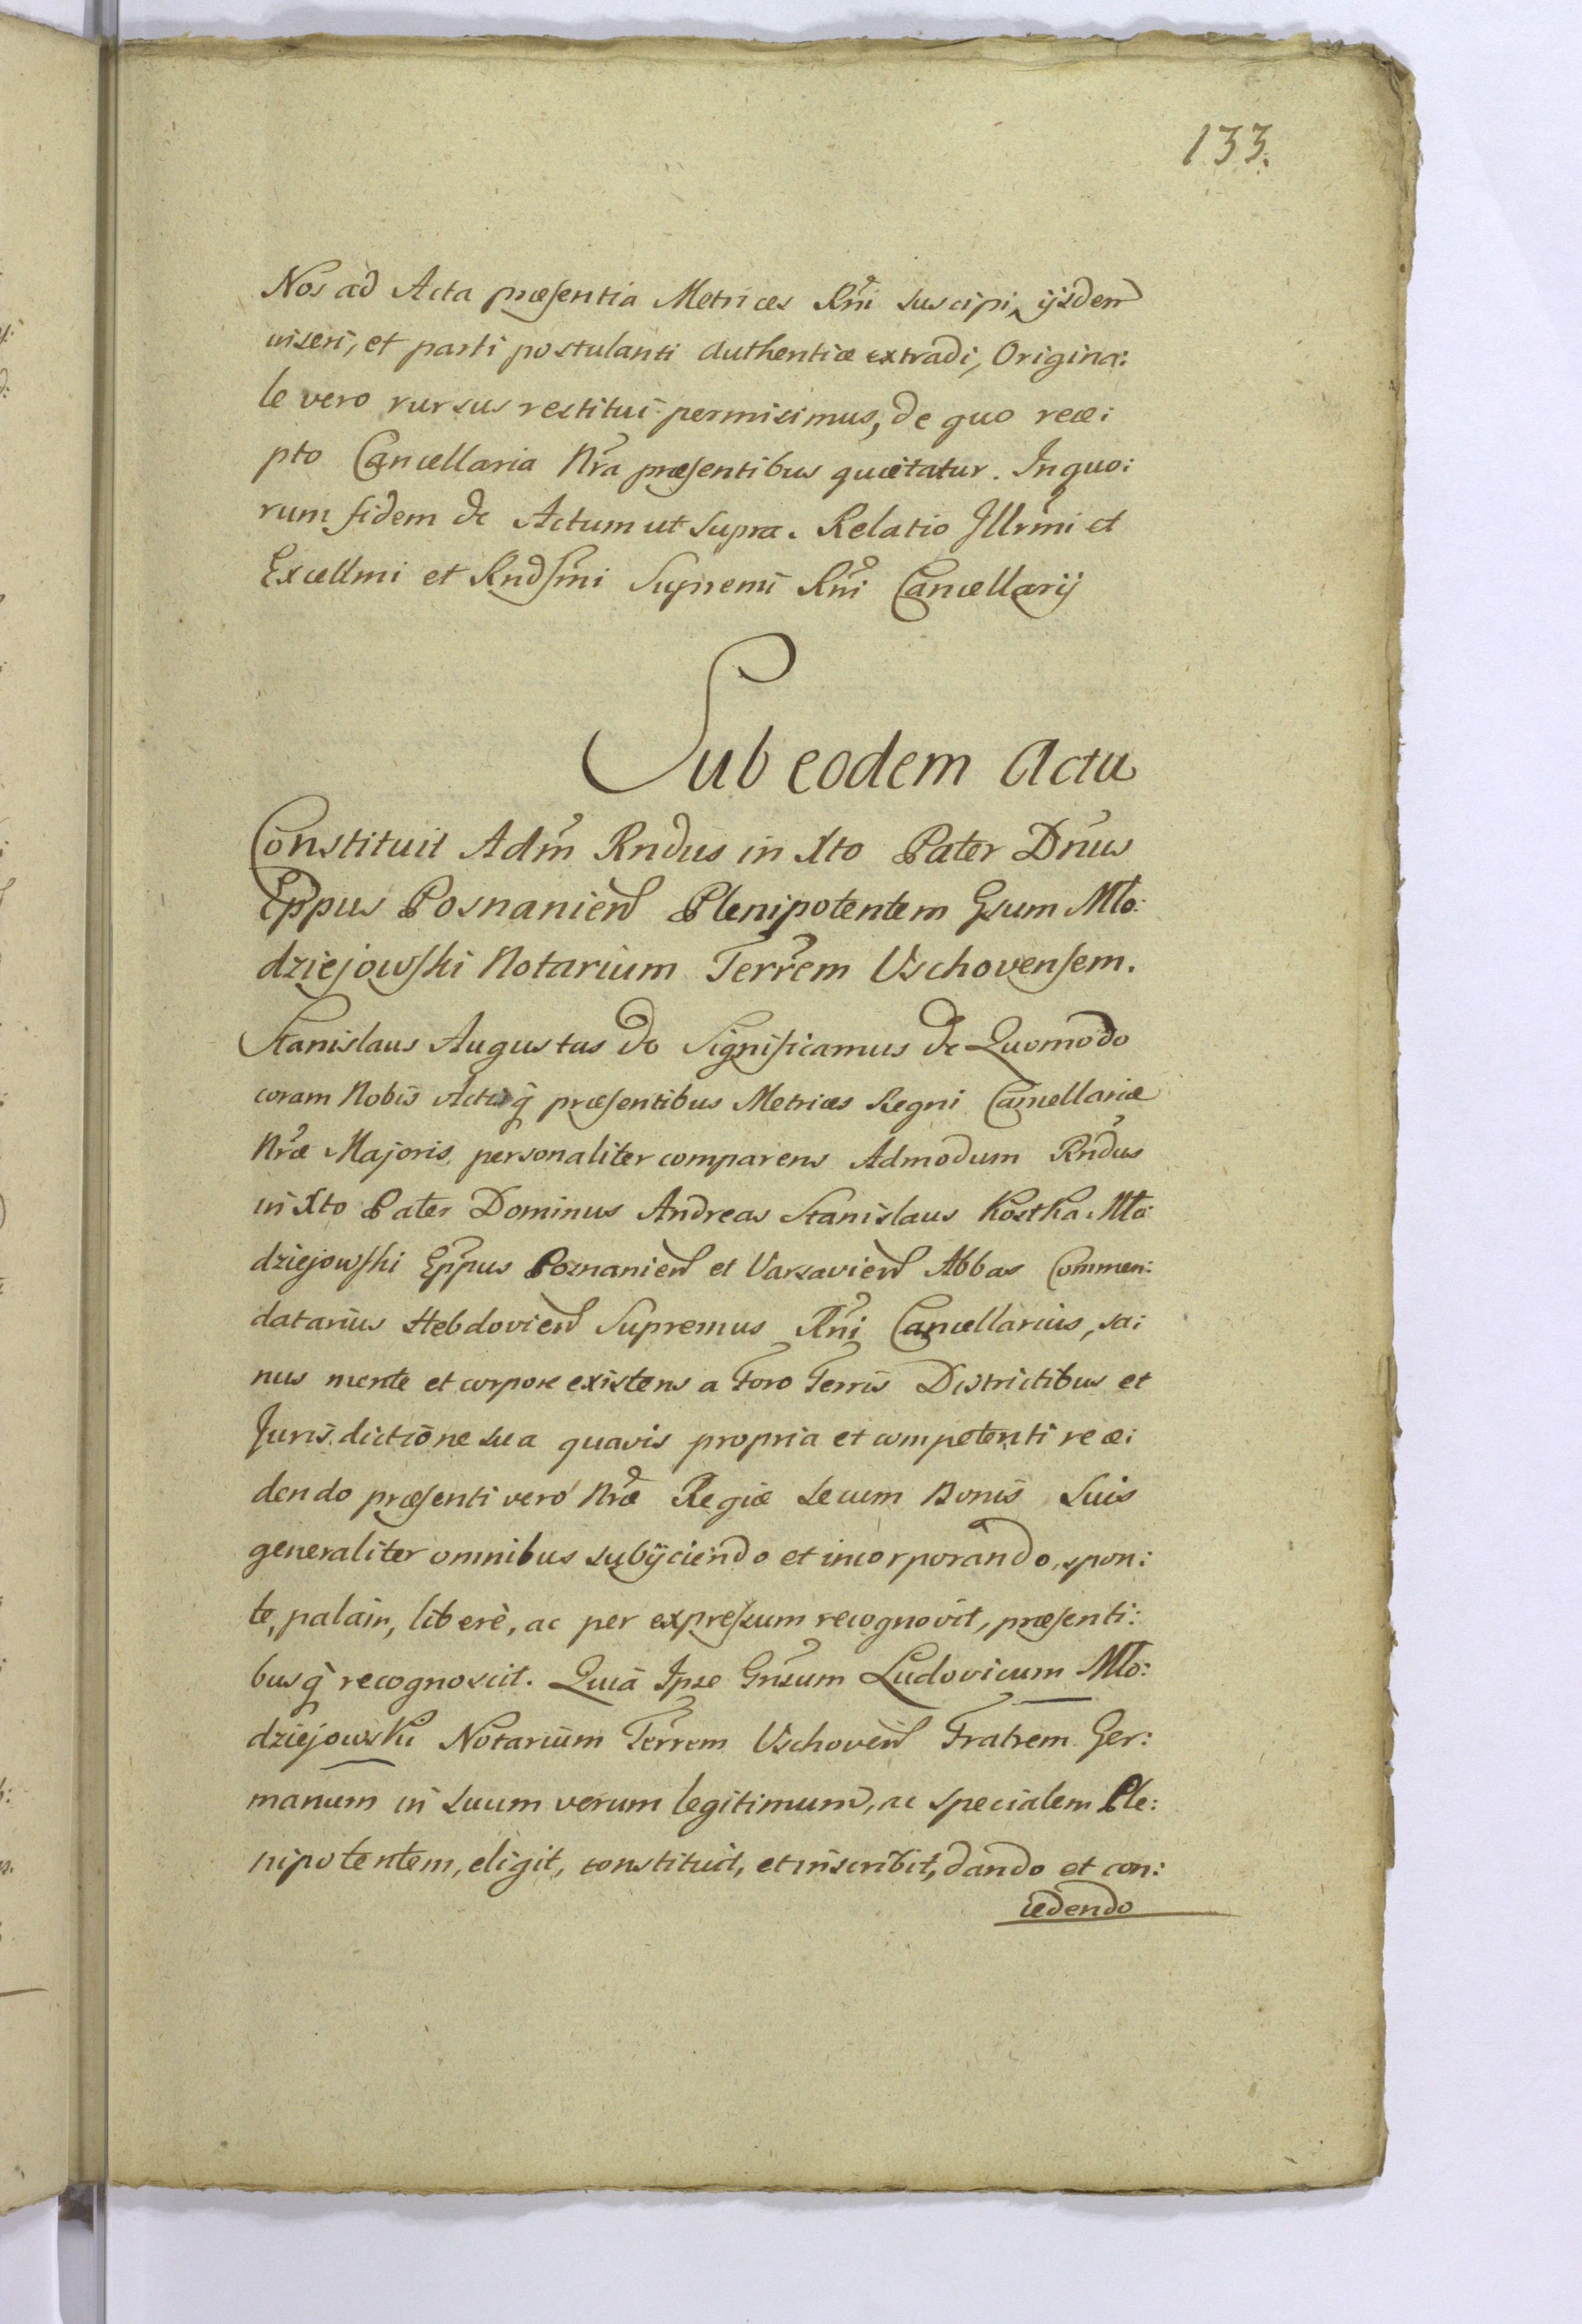 133.
Nos ad Acta præsentia Metrices Rni suscipi, ijsdem
inseri, et parti postulanti authentice extradi, Origina:
le vero rursus restitui permisimus, de quo rece:
pto Cancellaria Nra præsentibus quietatur. In quo:
rum fidem &c Actum ut supra. Relatio Illrmi et
Excellmi et Rndssmi Supremi Rni Cancellarij
Sub eodem Actu
Constituit Adm Rndus in Xto Pater Dnus
Eppus Posnanien Plenipotentem Gsum Mło:
dziejowski Notarium Terrem Vschovensem.
Stanislaus Augustus &c Significamus &c Quomodo
coram Nobis Actisq præsentibus Metrices Regni Cancellariæ
Nræ Majoris personaliter comparens Admodum Rndus
in Xto Pater Dominus Andreas Stanislaus Kostka Mło
dziejowski Eppus Poznanien et Varsavien Abbas Commen:
datarius Hebdovien Supremus Rni Cancellarius, sa:
nus mente et corpore existens a Foro Terris Districtibus et
Jurisdictione sua quavis propria et competenti rece:
dendo præsenti vero Nræ Regiæ secum Bonis suis
generaliter omnibus subijciendo et incorporando, spon:
te, palam, liberè, ac per expressum recognovit, præsenti:
busq recognoscit. Quia Ipse Gnsum Ludovicum Mło:
dziejowski Notarium Terrem Vschovien Fratrem Ger:
manum in suum verum legitimum, ac specialem Ple:
nipotentem, eligit, constituit, et inscribit, dando et con:
cedendo